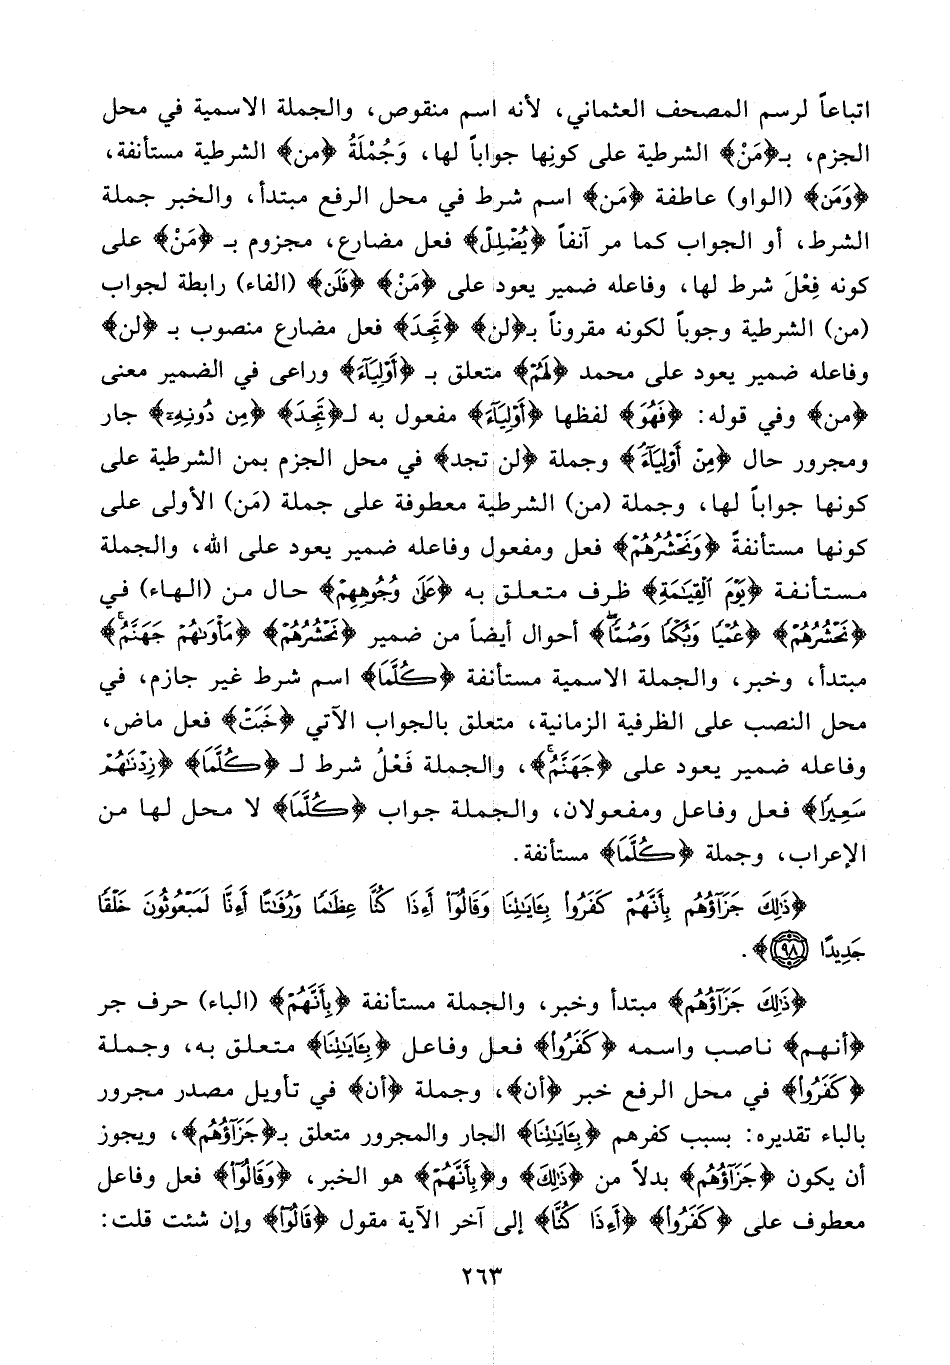 اتباعاً لرسم المصحف العثماني، لأنه اسم منقوص، والجملة الاسمية في محل
الجزم، بـ﴿مَنْ﴾ الشرطية على كونها جواباً لها، وَجُمْلَةُ ﴿من﴾ الشرطية مستأنفة،
﴿وَمَن﴾ (الواو) عاطفة ﴿مَن﴾ اسم شرط في محل الرفع مبتدأ، والخبر جملة
الشرط، أو الجواب كما مر آنفاً ﴿يُضْلِلْ﴾ فعل مضارع، مجزوم بـ ﴿مَنْ﴾ على
كونه فِعْلَ شرط لها، وفاعله ضمير يعود على ﴿مَنْ﴾ ﴿فَلَن﴾ (الفاء) رابطة لجواب
(من) الشرطية وجوباً لكونه مقروناً بـ﴿لن﴾ ﴿تَجِدَ﴾ فعل مضارع منصوب بـ ﴿لن﴾
وفاعله ضمير يعود على محمد ﴿لَهُمْ﴾ متعلق بـ ﴿أَوْلِيَآءَ﴾ وراعى في الضمير معنى
﴿من﴾ وفي قوله: ﴿فَهُوَ﴾ لفظها ﴿أَوْلِيَآءَ﴾ مفعول به لـ﴿تَجِدَ﴾ ﴿مِن دُونِهِۦ﴾ جار
ومجرور حال ﴿مِنْ أَوْلِيَآءَ﴾ وجملة ﴿لن تجد﴾ في محل الجزم بمن الشرطية على
كونها جواباً لها، وجملة (من) الشرطية معطوفة على جملة (مَن) الأولى على
كونها مستأنفةً ﴿وَنَحْشُرُهُمْ﴾ فعل ومفعول وفاعله ضمير يعود على الله، والجملة
مستأنفة ﴿يَوْمَ ٱلْقِيَٰمَةِ﴾ ظرف متعلق به ﴿عَلَىٰ وُجُوهِهِمْ﴾ حال من (الهاء) في
﴿نَحْشُرُهُمْ﴾ ﴿عُمْيًا وَبُكْمًا وَصُمًّاۖ﴾ أحوال أيضاً من ضمير ﴿نَحْشُرُهُمْ﴾ ﴿مَأْوَىٰهُمْ جَهَنَّمُۖ﴾
مبتدأ، وخبر، والجملة الاسمية مستأنفة ﴿كُلَّمَا﴾ اسم شرط غير جازم، في
محل النصب على الظرفية الزمانية، متعلق بالجواب الآتي ﴿خَبَتْ﴾ فعل ماض،
وفاعله ضمير يعود على ﴿جَهَنَّمُۖ﴾، والجملة فَعْلُ شرط لـ ﴿كُلَّمَا﴾ ﴿زِدْنَٰهُمْ
سَعِيرًا﴾ فعل وفاعل ومفعولان، والجملة جواب ﴿كُلَّمَا﴾ لا محل لها من
الإعراب، وجملة ﴿كُلَّمَا﴾ مستأنفة.
﴿ذَٰلِكَ جَزَآؤُهُم بِأَنَّهُمْ كَفَرُوا۟ بِـَٔايَٰتِنَا وَقَالُوٓا۟ أَءِذَا كُنَّا عِظَٰمًا وَرُفَٰتًا أَءِنَّا لَمَبْعُوثُونَ خَلْقًا
جَدِيدًا ٩٨﴾.
﴿ذَٰلِكَ جَزَآؤُهُم﴾ مبتدأ وخبر، والجملة مستأنفة ﴿بِأَنَّهُمْ﴾ (الباء) حرف جر
﴿أنهم﴾ ناصب واسمه ﴿كَفَرُوا۟﴾ فعل وفاعل ﴿بِـَٔايَٰتِنَا﴾ متعلق به، وجملة
﴿كَفَرُوا۟﴾ في محل الرفع خبر ﴿أن﴾، وجملة ﴿أن﴾ في تأويل مصدر مجرور
بالباء تقديره: بسبب كفرهم ﴿بِـَٔايَٰتِنَا﴾ الجار والمجرور متعلق بـ﴿جَزَآؤُهُم﴾، ويجوز
أن يكون ﴿جَزَآؤُهُم﴾ بدلاً من ﴿ذَٰلِكَ﴾ و﴿بِأَنَّهُمْ﴾ هو الخبر، ﴿وَقَالُوٓا۟﴾ فعل وفاعل
معطوف على ﴿كَفَرُوا۟﴾ ﴿أَءِذَا كُنَّا﴾ إلى آخر الآية مقول ﴿قَالُوٓا۟﴾ وإن شئت قلت:
٢٦٣